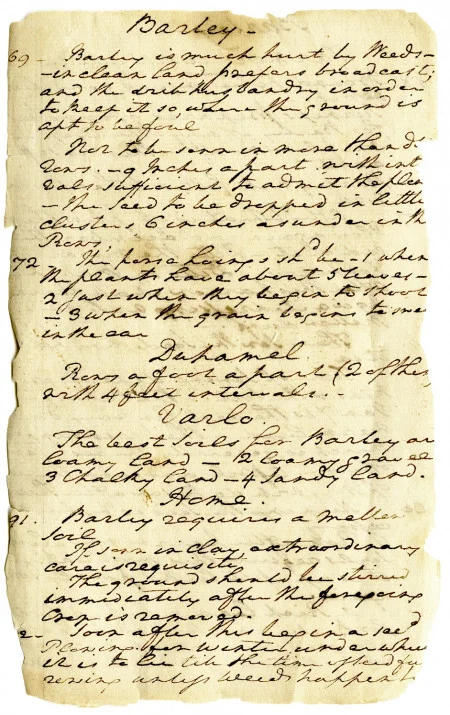 Barley –
69 – Barley is much hurt by Weeds –
– in clean land prefers broadcast;
and the drill husbandry in order
to keep it so, where the ground is
apt to be foul
Not to be sown in more than d.
rows. – 9 Inches apart with int
vals sufficient to admit the plow
– the seed to be dropped in little
clusters 6 inches asunder in the
Rows,
72 – The horse hoings shd. be – 1 when
the plants have about 5 leaves –
2 Just when they begin to shoot
– 3 when the grain begins to
in the ear
Duhamel.
Rows a foot apart (2 of them)
with 4 feet intervals. –
Varlo.
The best soils for Barley ar
loamy land – 2 loamy gravel
3 Chalky land – 4 Sandy land.
Home.
91. Barley requires a mellow
soil
If sown in clay, extraordinary
care is requisite,
The ground should be stirred
immediately after the foregoing
Crop is removed.
2 – Soon after this begin a secd.
Plowing for winter, under which
it is to lie till the time of seed fur
rowing unless weeds happen t